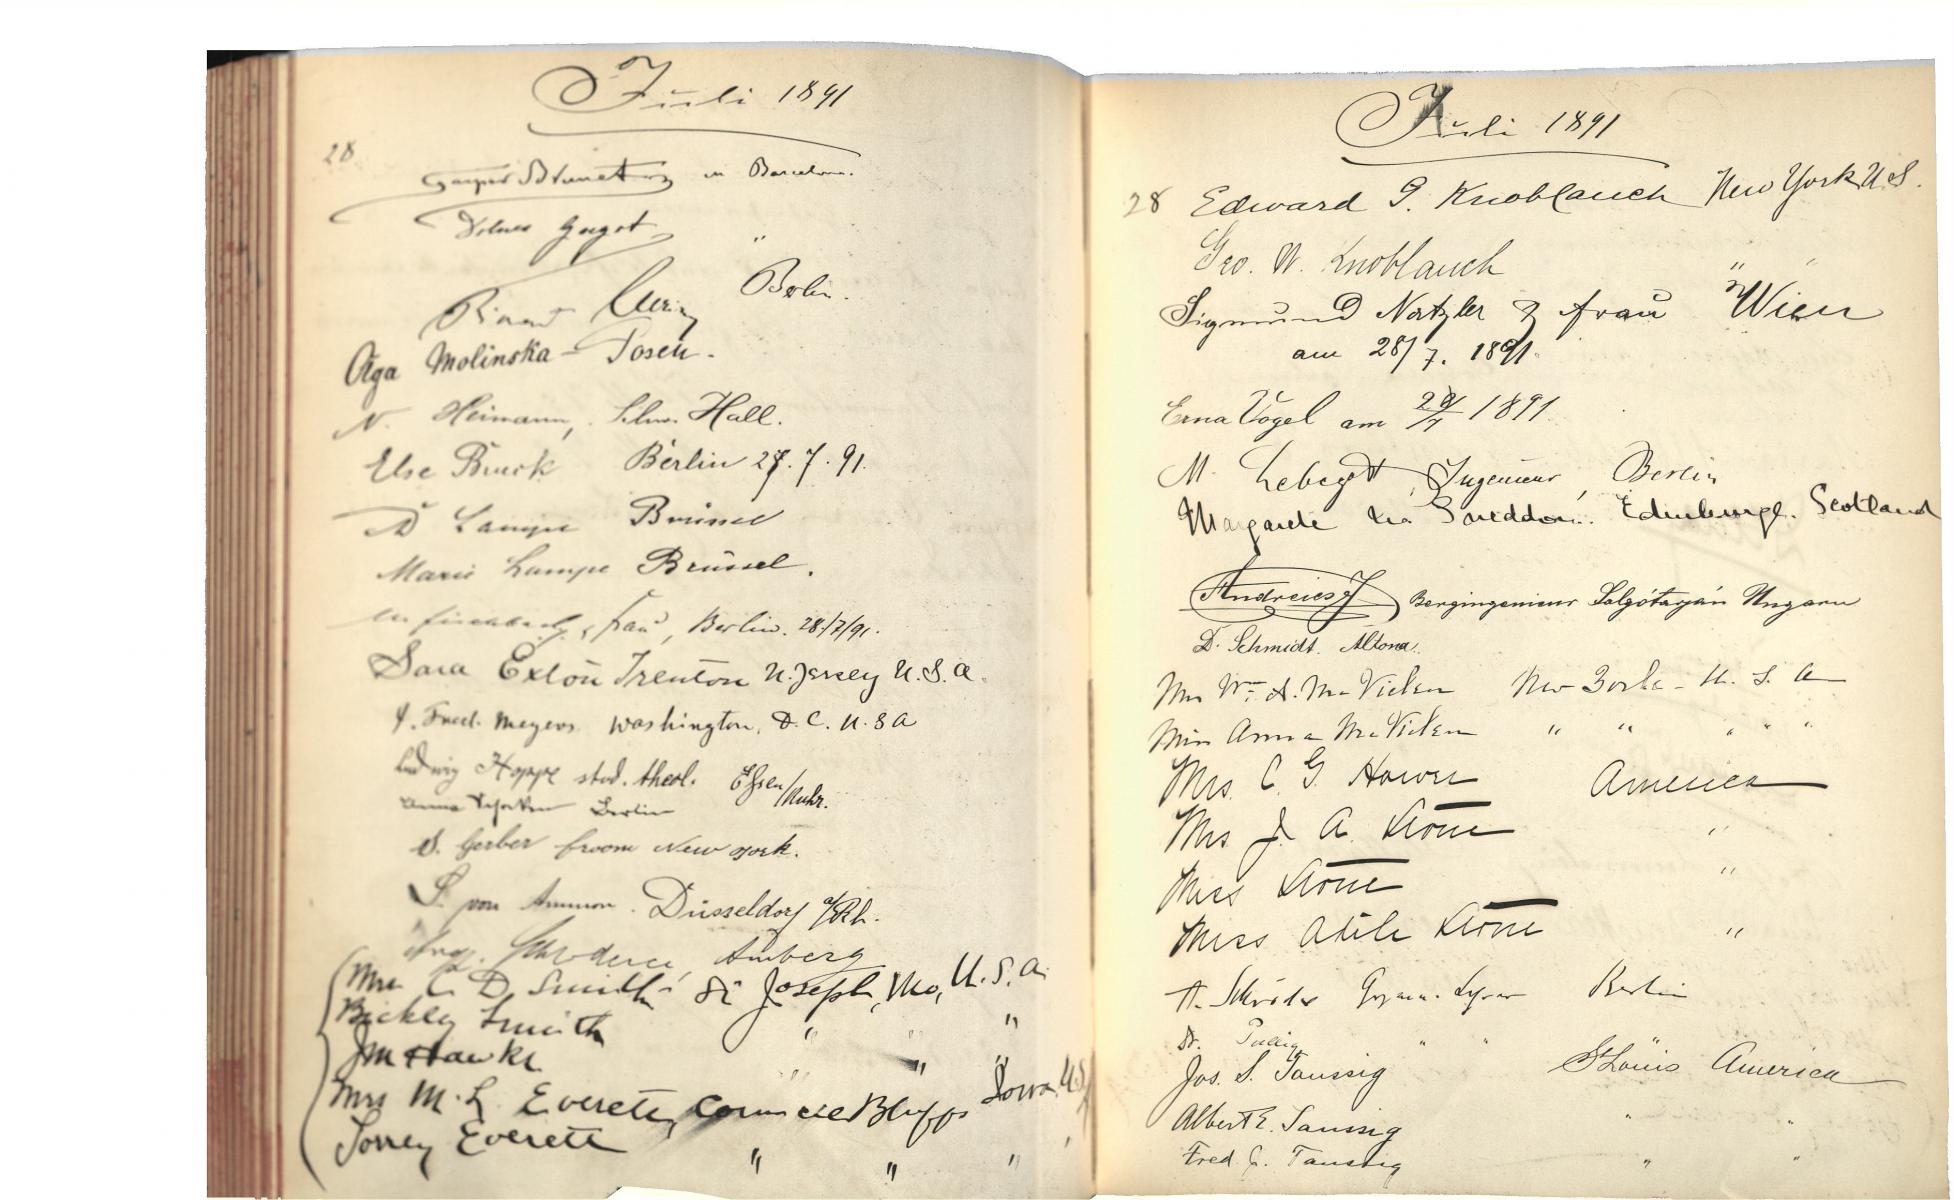 Juli 1891
28
in Barcelona.
"
Berlin.
Olga Molinska - Posen.
N. Heimann, Schw. Hall.
Else Burck Berlin 27. 7. 91.
Lampe Brüssel
Marie Lampe Brüssel.
frau, Berlin. 28/7/91.
Sara Exton Trenton N. Jersey U. S. A.
J. Fred. Meyers Washington, D. C. U. S A
Ludwig Hoppe stud. theol. Essen/Ruhr.
Anna Berlin
S. Gerber froom New york.
S. von Ammon. Düsseldorf a/Rh.
Aug. Amberg
Mrs C. D. Smith St Joseph, Mo, U. S. A.
Bickley Smith " " "
J M Hawks " " "
Mrs M. L. Everett, Council Bluffs Iowa U.S
Torrey Everett " " "
Juli 1891
28 Edward G. Knoblauch New York U. S.
Geo. W. Knoblauch " "
Sigmund Natzler & frau Wien
am 28/7. 1891.
Erna Vogel am 1891.
M. Ingenieur, Berlin
Edinburgh. Scotland
Andreics J Bergingenieur Salgótarján Ungarn
D. Schmidt. Altona.
Mrs Wm. A. McVicken New York - U. S. A
Miss Anna McVicken " " " " "
Mrs. C. G. Hower America
Mrs J. A. Krone "
Miss Krone "
Miss Adele Krone "
A. Schröder Berlin
Dr. " "
Jos. S. Taussig St Louis America
Albert E. Taussig " "
Fred. G. Taussig " "